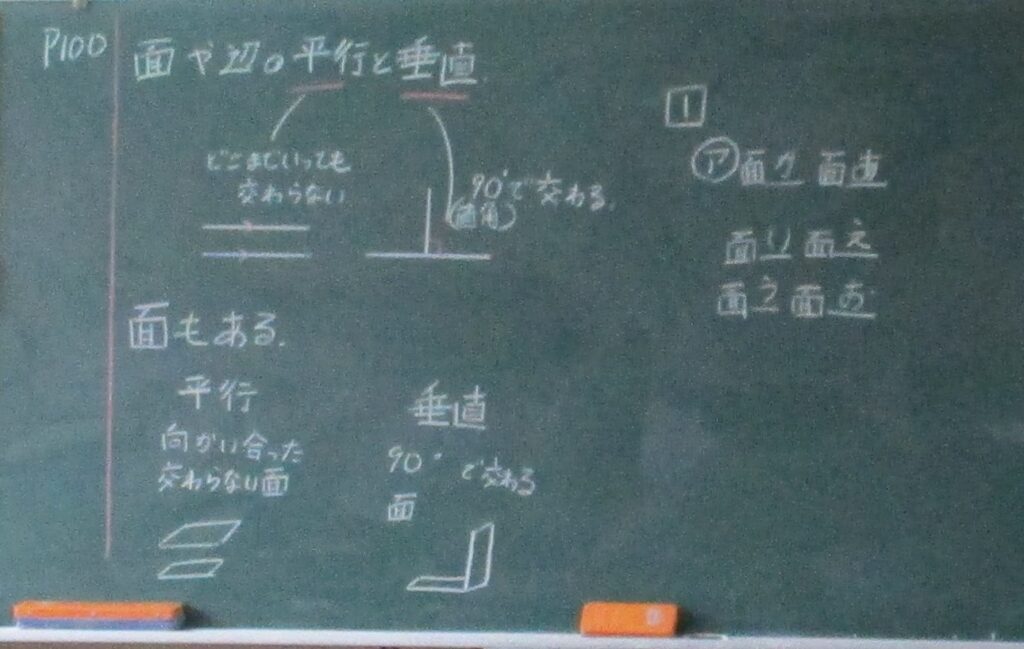 P100
面や辺の平行と垂直
どこまでいっても
交わらない
90°で交わる。
(直角)
面もある。
平行
向かい合った
交わらない面
垂直
90°で交わる
面
1
ア 面 面
面 り 面 え
面 う 面 お